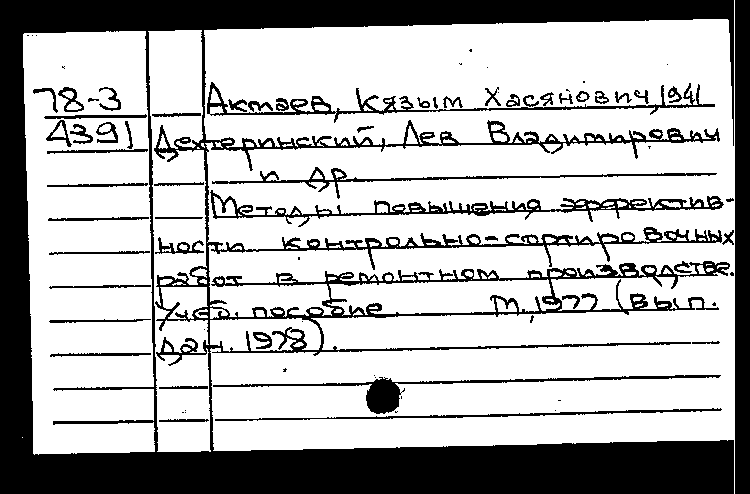 78-3 Актаев, Кязым Хасянович, 1941
4391 Дехтеринский, Лев Владимирович
и др.
Методы повышения эффектив-
ности контрольно-сортировочных
работ в ремонтном производстве.
Учеб. пособие. М., 1977 (вып.
дан. 1978).